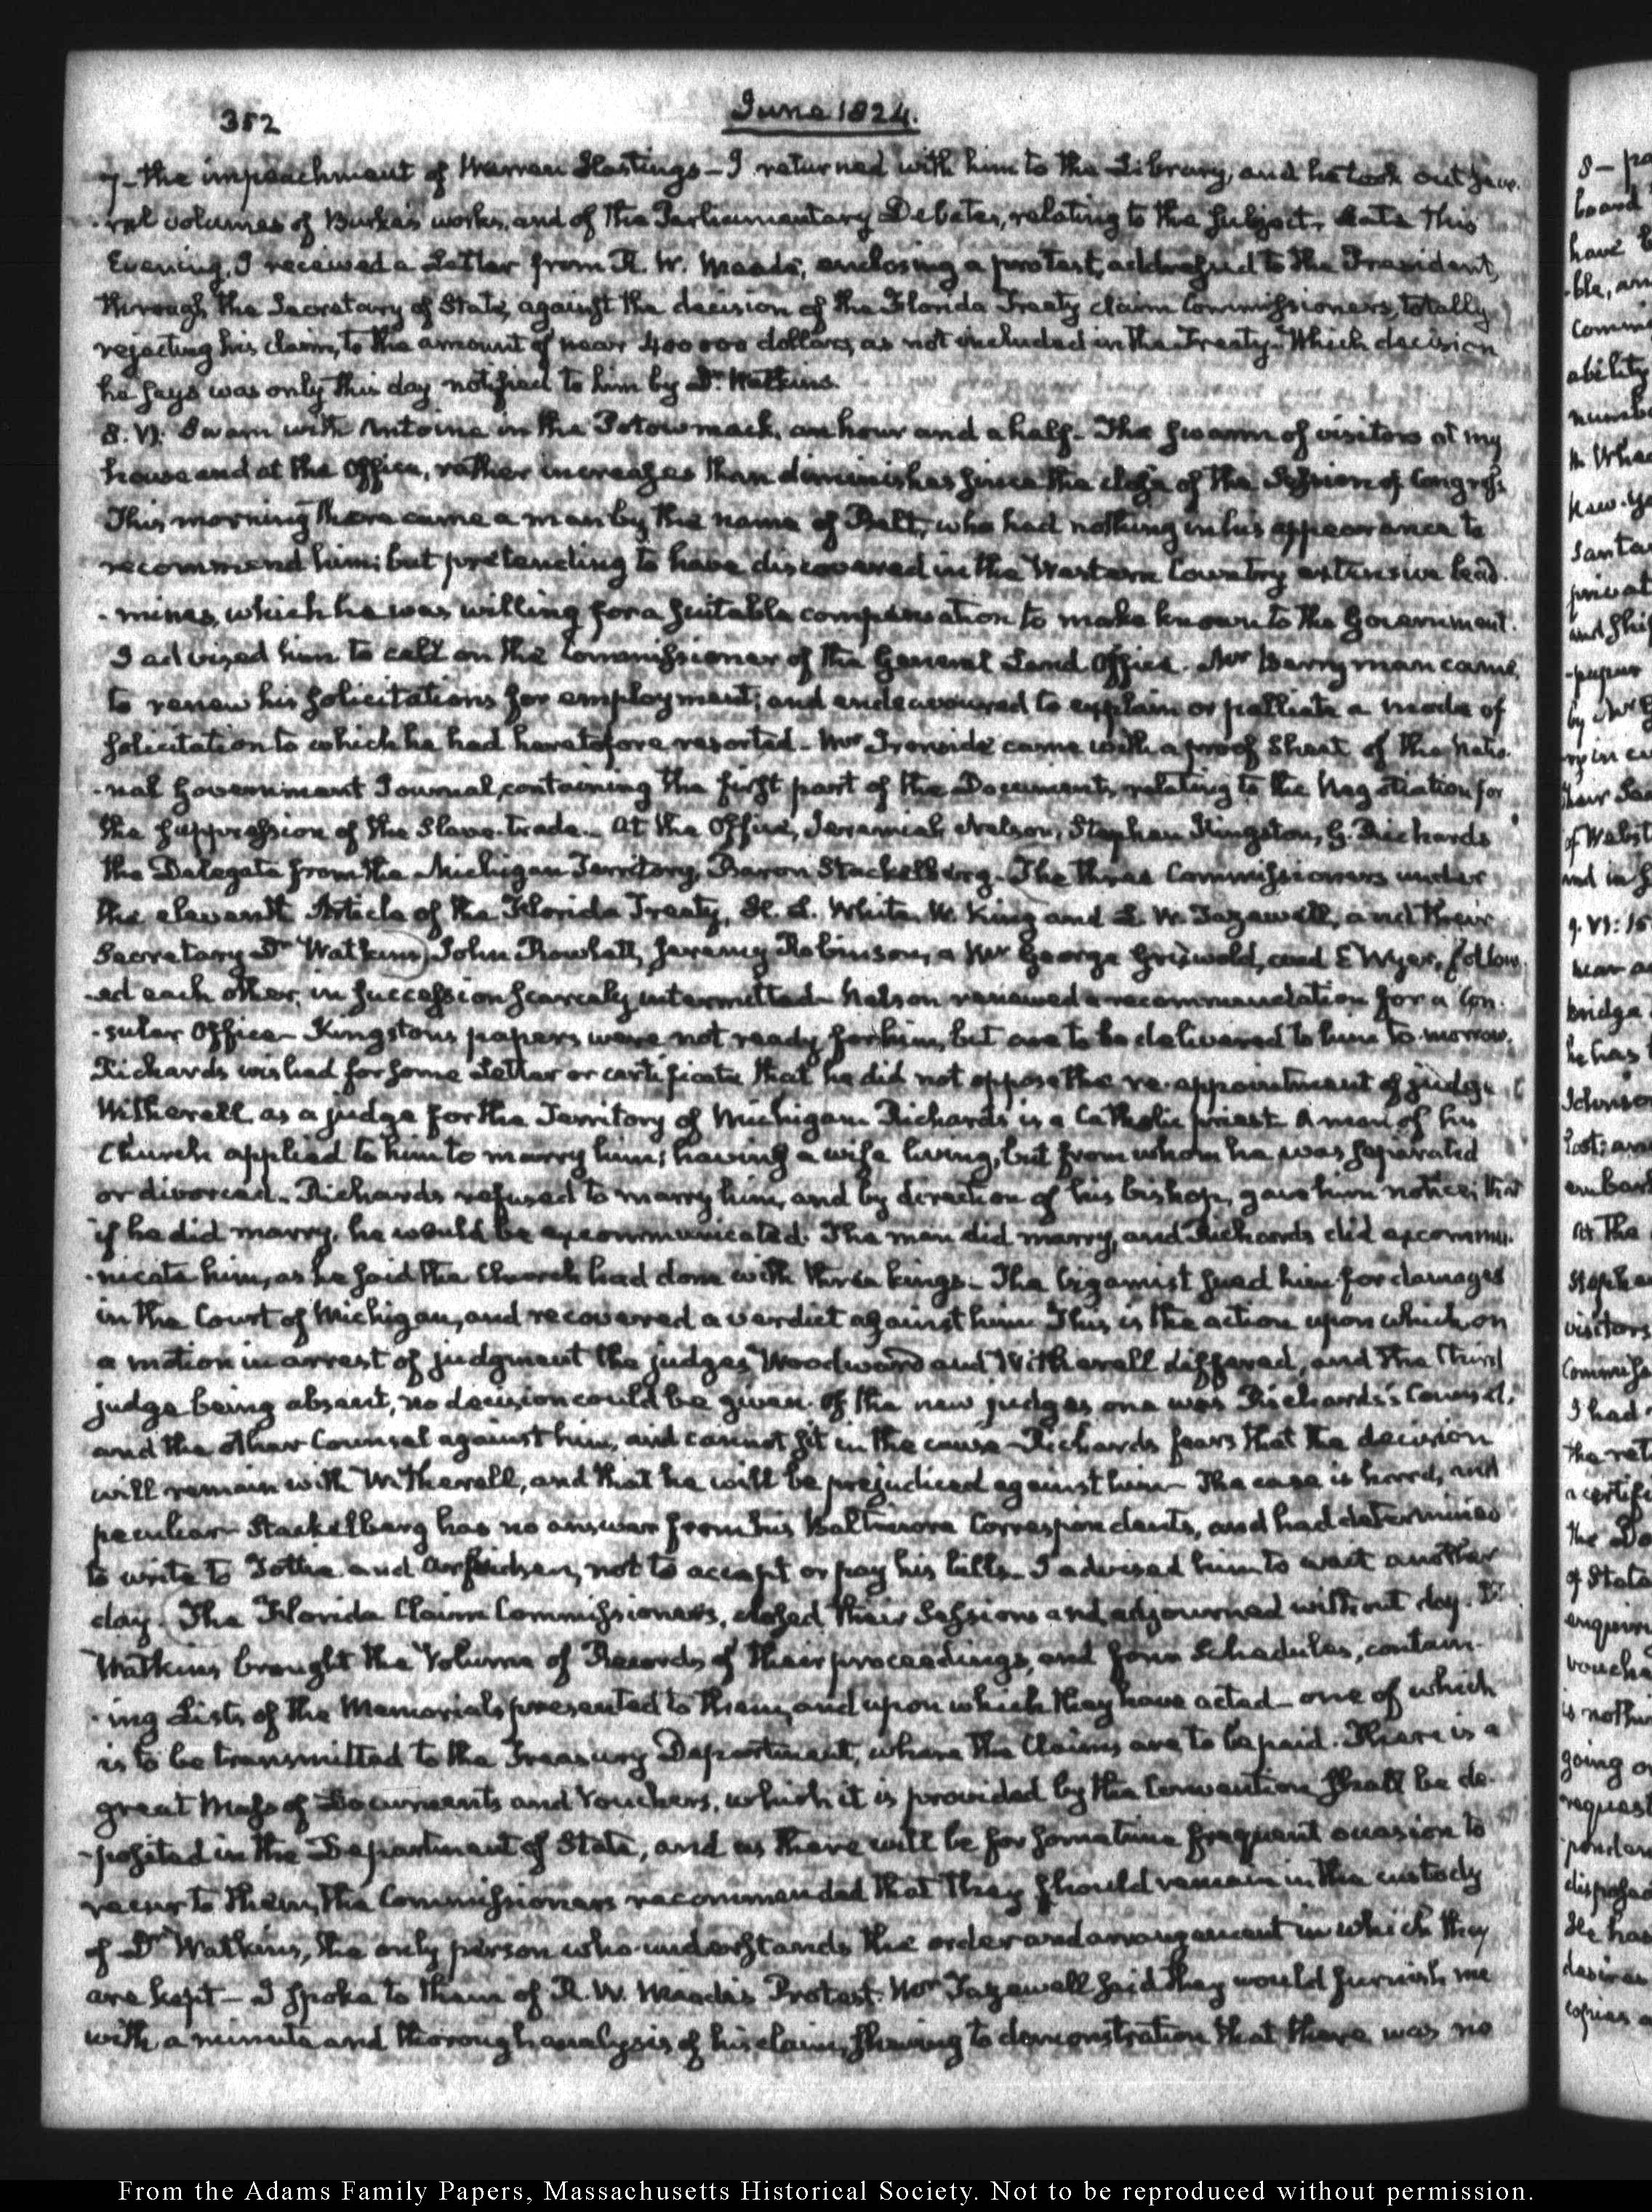 352
June 1824.
7 - the impeachment of Warren Hastings - I returned with him to the Library, and he took out seve-
-ral volumes of Burke's works, and of the Parliamentary Debates, relating to the subject. Late this
Evening, I received a Letter from R. W. Meade, enclosing a protest, addressed to the President,
through the Secretary of State, against the decision of the Florida Treaty claim Commissioners, totally
rejecting his claim, to the amount of near 400000 dollars, as not included in the Treaty. Which decision
he says was only this day notified to him by Dr. Watkins.
8. VI: Swam with Antoine in the Potowmack, an hour and a half. The swarm of visitors at my
house and at the Office, rather increases than diminishes since the close of the Session of Congress.
This morning there came a man by the name of Belt, who had nothing in his appearance to
recommend him: but pretending to have discovered in the Western Country extensive lead
-mines, which he was willing for a suitable compensation to make known to the Government.
I advised him to call on the Commissioner of the General Land Office. Mr Berryman came
to renew his solicitations for employment; and endeavoured to explain or palliate a mode of
solicitation to which he had heretofore resorted. Mr Ironside came with a proof sheet of the Natio-
-nal Government Journal, containing the first part of the Documents, relating to the Negotiation for
the suppression of the Slave-trade. At the Office, Jeremiah Nelson, Stephen Kingston, G. Richards
the Delegate from the Michigan Territory, Baron Stackelberg. The three Commissioners under
the eleventh Article of the Florida Treaty, H. L. White, W. King and L. W. Tazewell, and their
Secretary Dr Watkins, John Rowlett, Jeremy Robinson, a Mr George Griswold, and E Wyer, follow-
-ed each other, in succession scarcely intermitted. Nelson renewed a recommendation for a Con-
-sular Office - Kingston's papers were not ready for him, but are to be delivered to him to-morrow.
Richards wished for some Letter or certificate that he did not oppose the re-appointment of judge
Witherell as a judge for the Territory of Michigan. Richards is a Catholic priest. A man of his
Church applied to him to marry him; having a wife living, but from whom he was separated
or divorced. Richards refused to marry him, and by direction of his bishop, gave him notice, that
if he did marry, he would be excommunicated. The man did marry, and Richards did excommu-
-nicate him, as he said the Church had done with three kings. The bigamist sued him for damages
in the Court of Michigan, and recovered a verdict against him. This is the action upon which on
a motion in arrest of judgment the judges Woodward and Witherell differed, and the third
judge being absent, no decision could be given. Of the new judges one was Richards's Counsel,
and the other Counsel against him, and cannot sit in the cause. Richards fears that the decision
will remain with Witherell, and that he will be prejudiced against him. The case is hard, and
peculiar. Stackelberg has no answer from his Baltimore Correspondents, and had determined
to write to Tottie and not to accept or pay his bills. I advised him to wait another
day. The Florida Claim Commissioners, closed their Sessions and adjourned without day. Dr
Watkins brought the Volume of Records of their proceedings, and four Schedules, contain-
-ing Lists of the Memorials presented to them, and upon which they have acted - one of which
is to be transmitted to the Treasury Department, where the Claims are to be paid. There is a
great Mass of Documents and Vouchers, which it is provided by the Convention shall be de-
-posited in the Department of State, and as there will be for sometime frequent occasion to
recur to them, the Commissioners recommended that they should remain in the custody
of Dr Watkins, the only person who understands the order and arrangement in which they
are kept - I spoke to them of R. W. Meade's Protest. Mr Tazewell said they would furnish me
with a minute and thorough analysis of his claim, shewing to demonstration that there was no
From the Adams Family Papers, Massachusetts Historical Society. Not to be reproduced without permission.